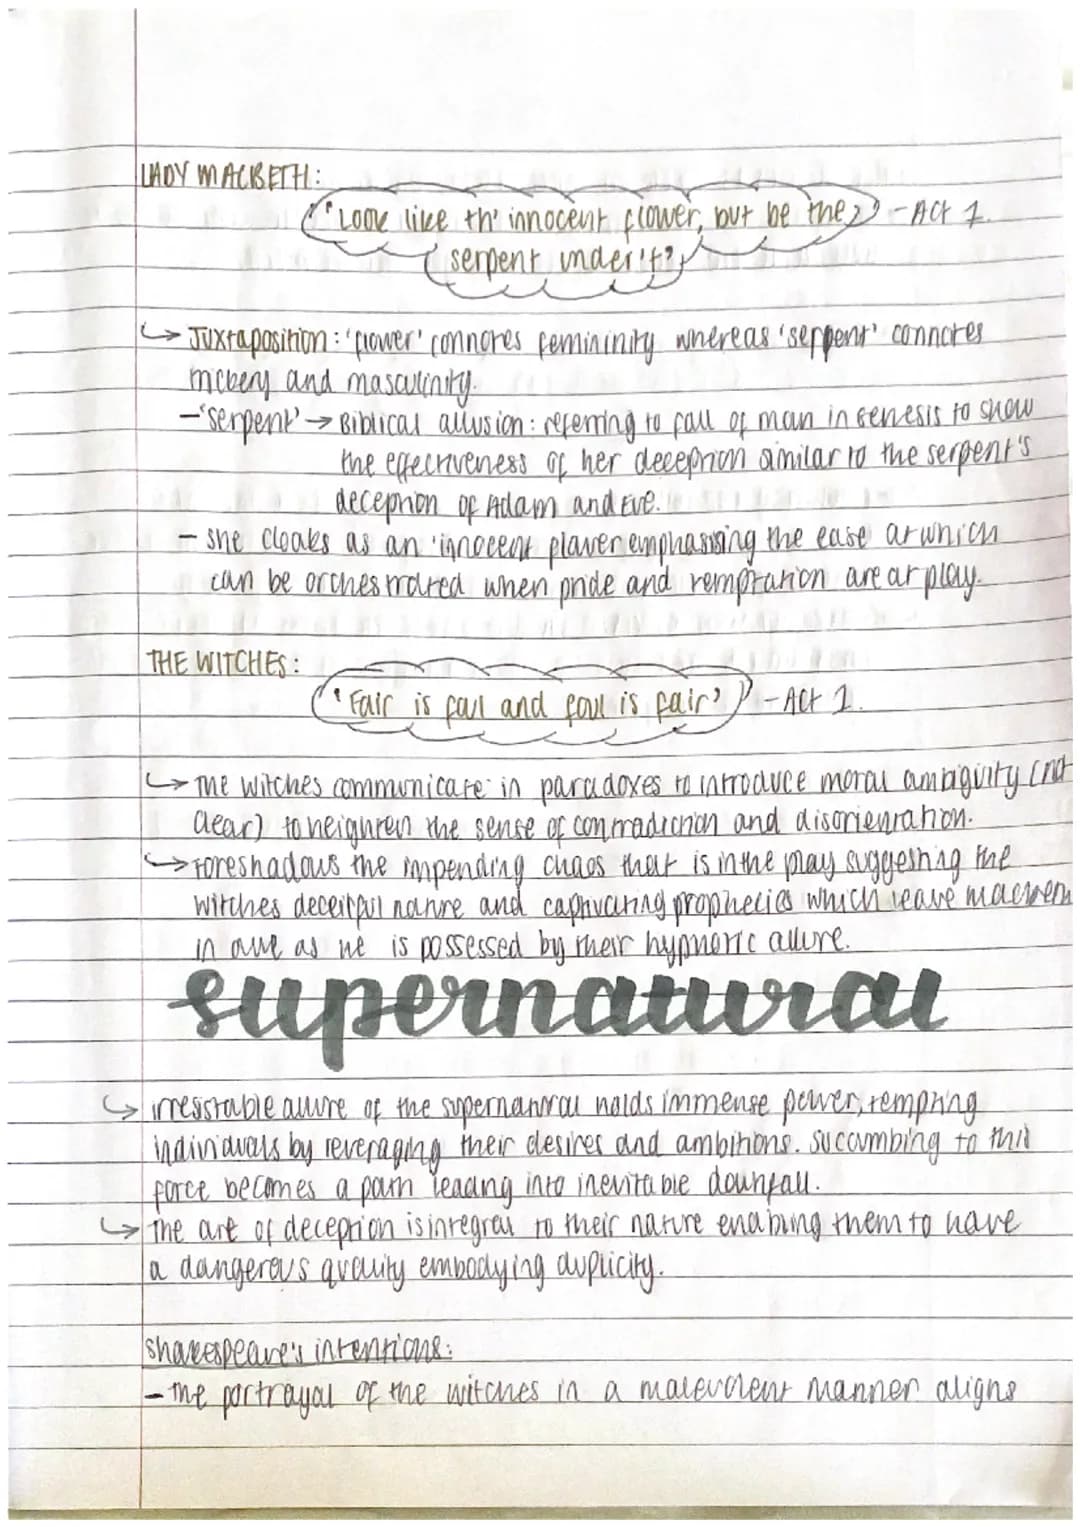 LADY MACBETH:
"Look like th' innocent flower, but be the - Act 1.
serpent under't"
↳ Juxtaposition: 'flower' connotes femininity whereas 'serpent' connotes
and masculinity.
- 'serpent' → Biblical allusion: referring to fall of man in Genesis to show
the effectiveness of her deception similar to the serpent's
deception of Adam and Eve.
- she cloaks as an 'innocent flower emphasising the ease at which
can be orchestrated when pride and temptation are at play.
THE WITCHES:
'Fair is foul and foul is fair' - Act 1.
↳ The witches communicate in paradoxes to introduce moral ambiguity (not
clear) to heighten the sense of contradiction and disorientation.
↳ Foreshadows the impending chaos that is in the play suggesting the
witches deceitful nature and captivating prophecies which leave macbeth
in awe as he is possessed by their hypnotic allure.
supernatural
↳ irresistable allure of the supernatural holds immense power, tempting
individuals by leveraging their desires and ambitions. Succumbing to this
force becomes a path leading into inevitable downfall.
↳ The art of deception is integral to their nature enabling them to have
a dangerous quality embodying duplicity.
Shakespeare's intentions:
- The portrayal of the witches in a malevolent manner aligns